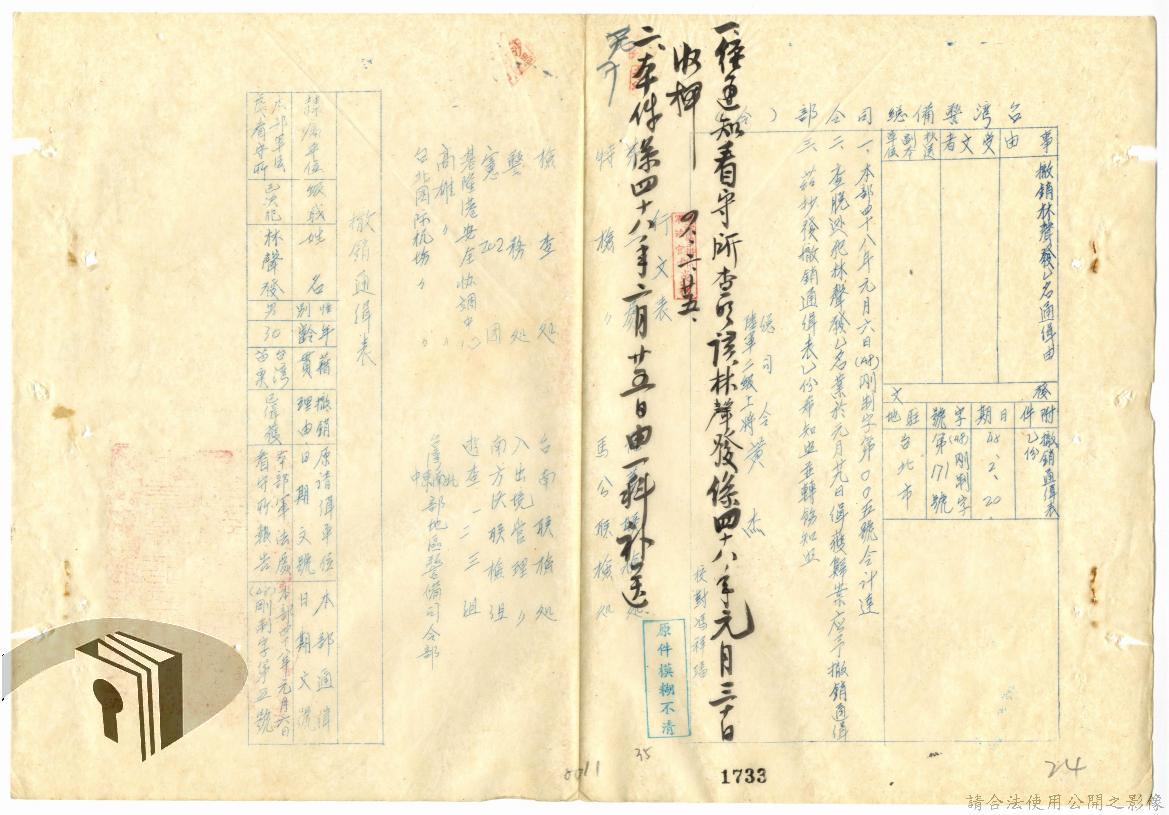 台灣警備總司令部（令）
事由
撤銷林聲發乙名通緝由
受文者
抄送副本單位
發文
附件
撤銷通緝表乙份
日期
48、2、20
字號
(48)剛制字第171號
駐地
台北市
一、本部四十八年元月六日(48)剛制字第００五號令計達
二、查脫逃犯林聲發乙名業於元月廿九日緝獲歸案應予撤銷通緝
三、茲抄發撤銷通緝表乙份希知照並轉飭知照
總司令
陸軍二級上將 黃杰
校對馮祥
一、經通知看守所查明該林聲發係四十八年元月三十日
收押
四八、二、廿五、
二、本件係四十八年二月廿五日由一科补送
原件模糊不清
行文表
特檢處
馬公聯檢处
檢查处
台南聯檢处
警務处
入出境管理〃
憲202团
南方泛聯檢组
基隆港安全協調中心
遊查一二三组
高雄〃〃
台北国际机場〃〃
台灣南北中東部地區警備司令部
撤銷通緝表
隸屬單位
級職
姓名
性別
年齡
籍貫
撤銷理由
原請緝單位日期文號
本部通緝日期文號
本部軍法處看守所
已決犯
林聲發
男
30
台灣苗栗
已緝獲
本部軍法處看守所報告
本部四十八年元月六日(48)剛制字第五號
0011
35
1733
24
請合法使用公開之影像